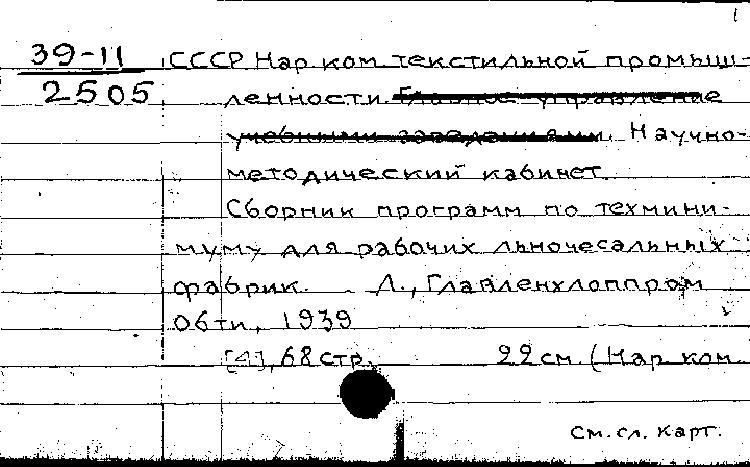 1
39-11 СССР Нар ком текстильной промыш-
2505 ленности. Главное управление
учебными заведениями. Научно-
методический кабинет.
Сборник программ по техмини-
муму для рабочих льночесальных
фабрик. Л., Главленхлоппром
1939
[4], 68 стр. 22 см. (Нар ком
См. сл. карт.